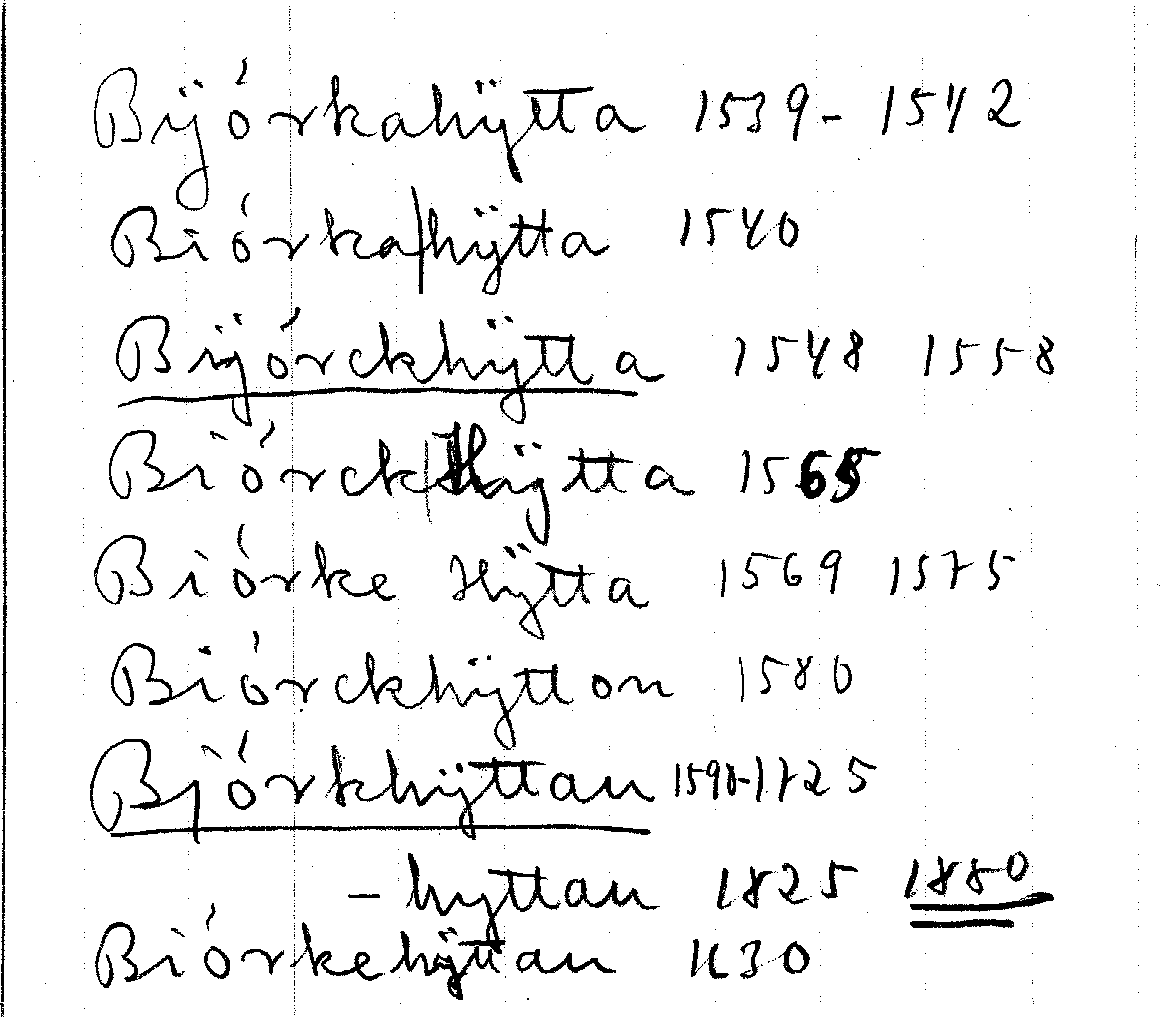 Bÿórkahÿtta 1539-1542
Biórka|hÿtta 1540
Bÿórckhÿtta 1548 1558
Biórck|Hÿtta 1565
Biórke Hÿtta 1569 1575
Biórckhÿtton 1580
Bjórkhÿttan 1590-1725
-hyttan 1825 1880
Biórkehÿttan 1630